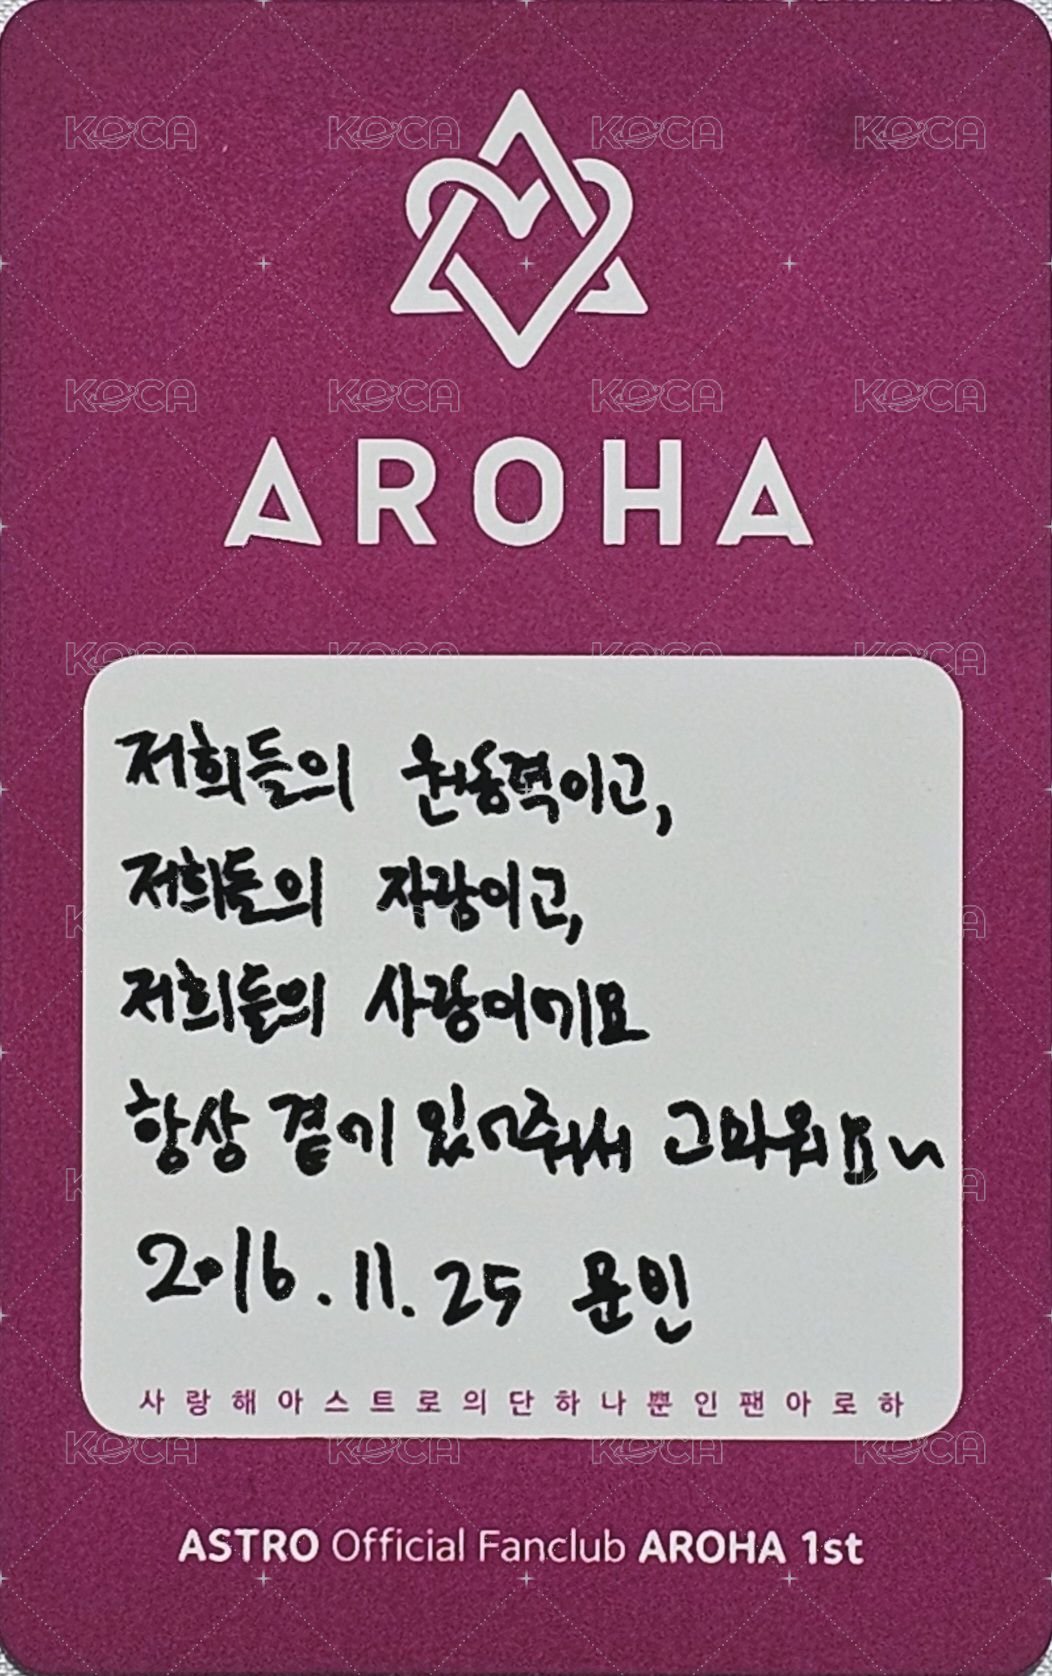 AROHA
저희들의 원동력이고,
저희들의 자랑이고,
저희들의 사랑이에요
항상 곁에 있어줘서 고마워요~
2016.11.25 문빈
사랑해아스트로의단하나뿐인팬아로하
ASTRO Official Fanclub AROHA 1st
KOCA